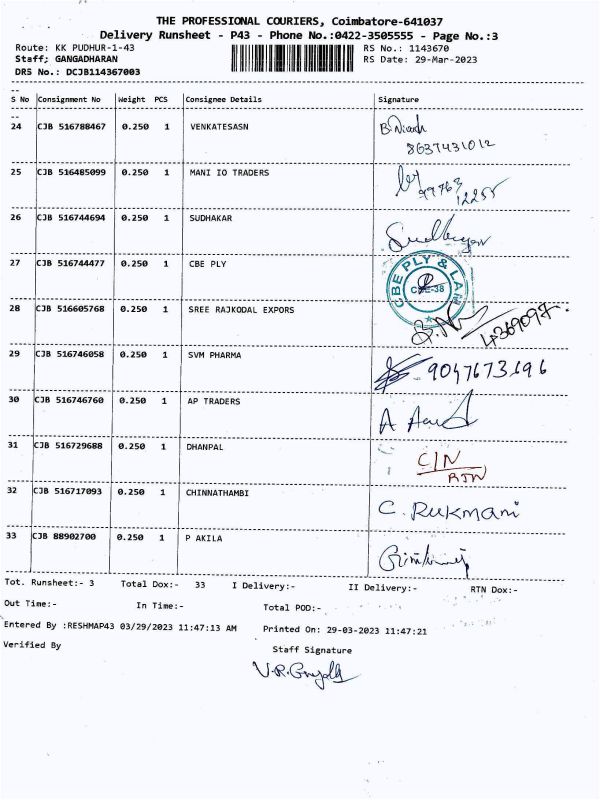 THE PROFESSIONAL COURIERS, Coimbatore-641037
Delivery Runsheet - P43 - Phone No.:0422-3505555 - Page No.:3
Route: KK PUDHUR-1-43 RS No.: 1143670
Staff; GANGADHARAN RS Date: 29-Mar-2023
DRS No.: DCJB114367003
S No Consignment No Weight PCS Consignee Details Signature
24 CJB 516788467 0.250 1 VENKATESASN
8637431012
25 CJB 516485099 0.250 1 MANI IO TRADERS
99763
12255
26 CJB 516744694 0.250 1 SUDHAKAR
27 CJB 516744477 0.250 1 CBE PLY CBE PLY & LAM
28 CJB 516605768 0.250 1 SREE RAJKODAL EXPORS
4369097
29 CJB 516746058 0.250 1 SVM PHARMA
30 CJB 516746760 0.250 1 AP TRADERS
31 CJB 516729688 0.250 1 DHANPAL C/N
RTN
32 CJB 516717093 0.250 1 CHINNATHAMBI C. RUKMANI
33 CJB 88902700 0.250 1 P AKILA
Tot. Runsheet:- 3 Total Dox:- 33 I Delivery:- II Delivery:- RTN Dox:-
Out Time:- In Time:- Total POD:-
Entered By :RESHMAP43 03/29/2023 11:47:13 AM Printed On: 29-03-2023 11:47:21
Verified By Staff Signature